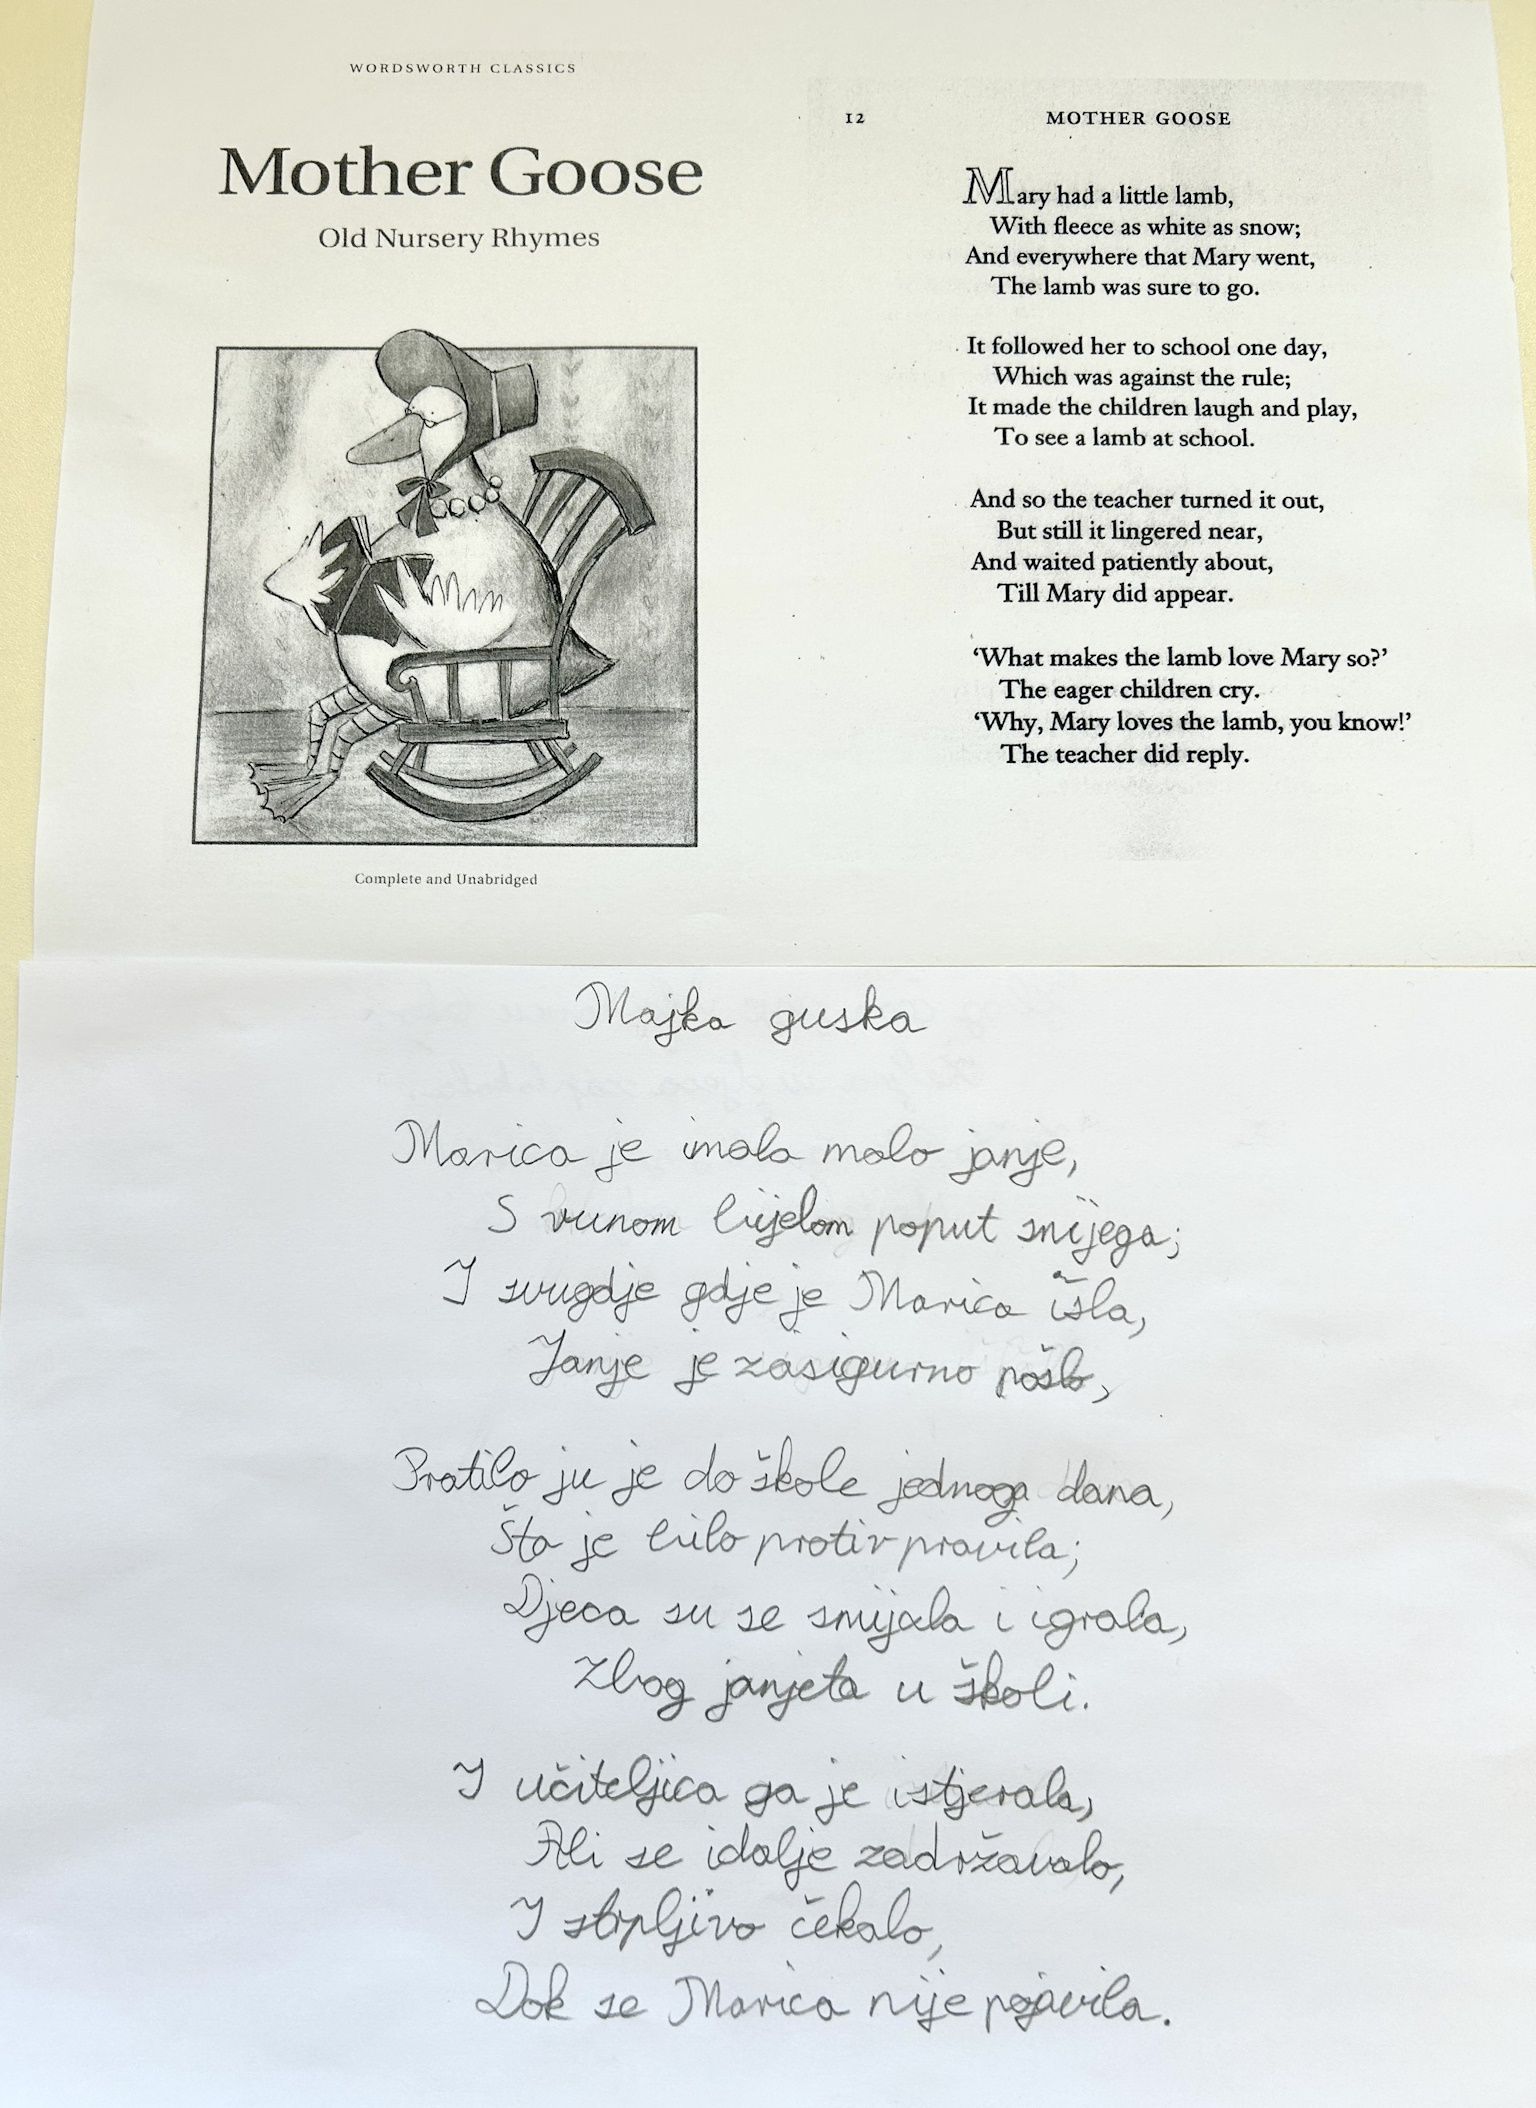 WORDSWORTH CLASSICS
Mother Goose
Old Nursery Rhymes
Complete and Unabridged
12 MOTHER GOOSE
Mary had a little lamb,
With fleece as white as snow;
And everywhere that Mary went,
The lamb was sure to go.
It followed her to school one day,
Which was against the rule;
It made the children laugh and play,
To see a lamb at school.
And so the teacher turned it out,
But still it lingered near,
And waited patiently about,
Till Mary did appear.
‘What makes the lamb love Mary so?’
The eager children cry.
‘Why, Mary loves the lamb, you know!’
The teacher did reply.
Majka guska
Marica je imala malo janje,
S vunom bijelom poput snijega;
I svugdje gdje je Marica išla,
Janje je zasigurno pošlo,
Pratilo ju je do škole jednoga dana,
Šta je bilo protiv pravila;
Djeca su se smijala i igrala,
Zbog janjeta u školi.
I učiteljica ga je istjerala,
Ali se idalje zadržavalo,
I strpljivo čekalo,
Dok se Marica nije pojavila.